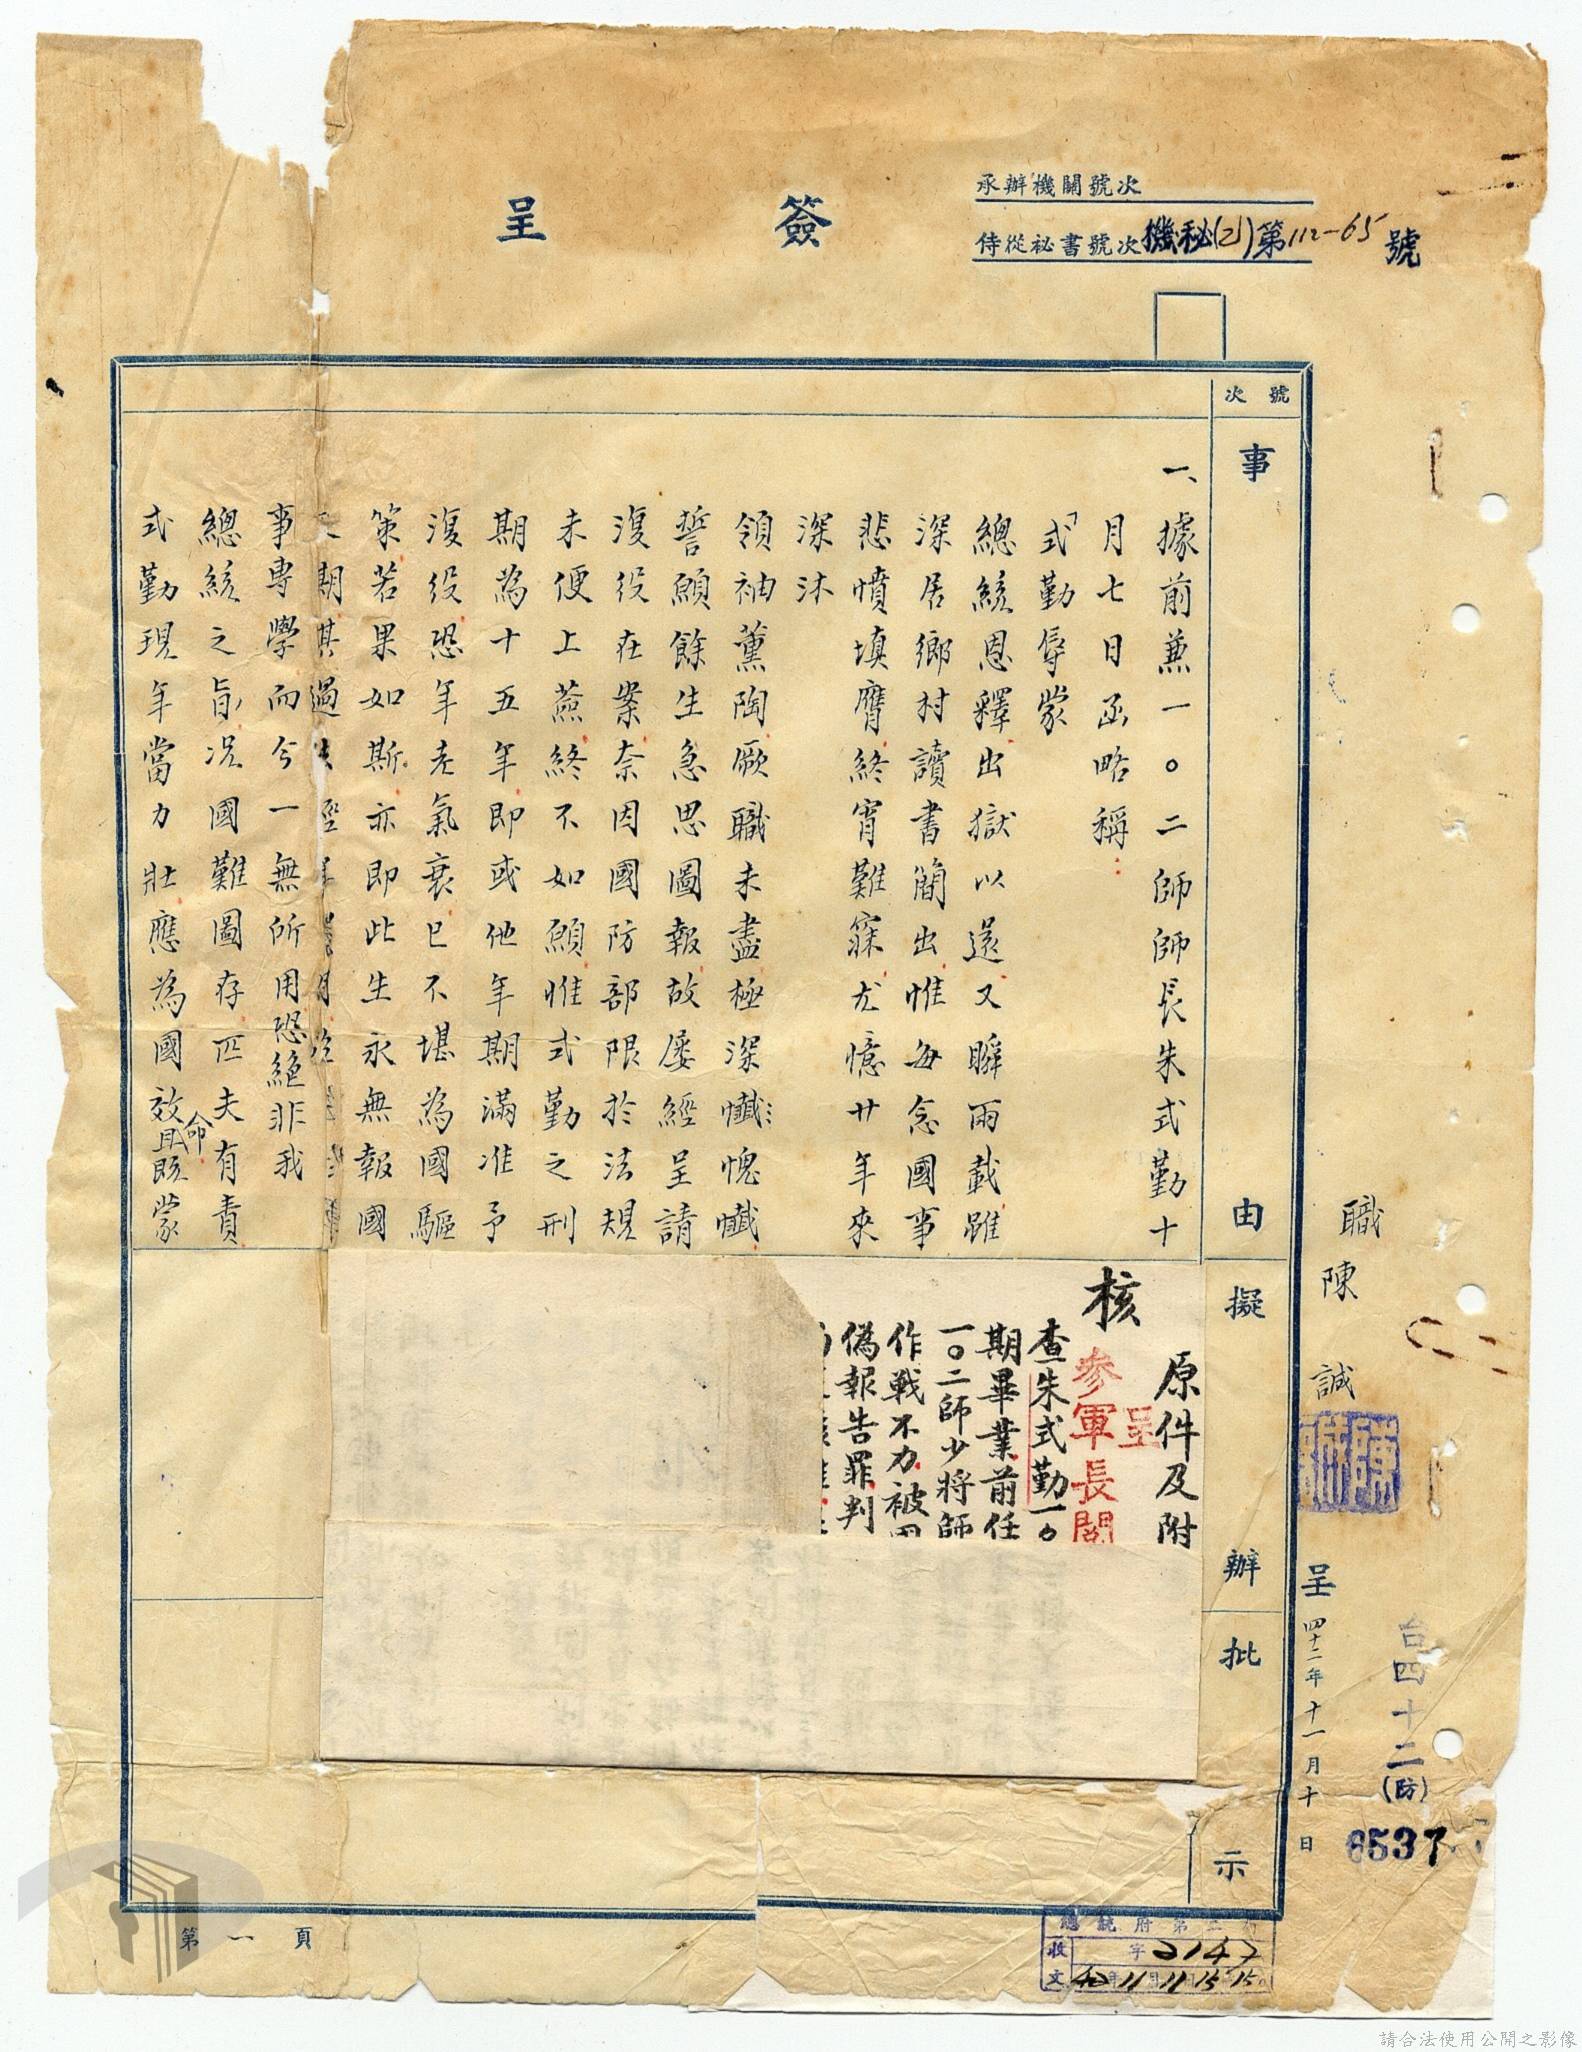 簽呈
承辦機關號次
侍從祕書號次機秘(乙)第112-65號
職陳誠
呈
四十二年十一月十日
台四十二(防)
6537
號次
事由
擬辦
批示
一、據前兼一〇二師師長朱式勤十
月七日函略稱：
「式勤辱蒙
總統恩釋出獄以還又瞬兩載雖
深居鄉村讀書簡出惟每念國事
悲憤填膺終宵難寐尤憶廿年來
深沐
領袖薰陶厥職未盡極深懺愧懺
誓願餘生急思圖報故屢經呈請
復役在案奈因國防部限於法規
未便上蒸終不如願惟式勤之刑
期為十五年即或他年期滿准予
復役恐年老氣衰已不堪為國驅
策若果如斯亦即此生永無報國
之期其過
事專學而今一無所用恐絕非我
總統之旨況國難圖存匹夫有責
式勤現年當力壯應為國效命且既蒙
原件及附
呈
參軍長閣
核
查朱式勤一〇
期畢業前任
一〇二師少將師
作戰不力被
偽報告罪判
第一頁
總統府第二局
收文
字2147
42年11月11日15
請合法使用公開之影像